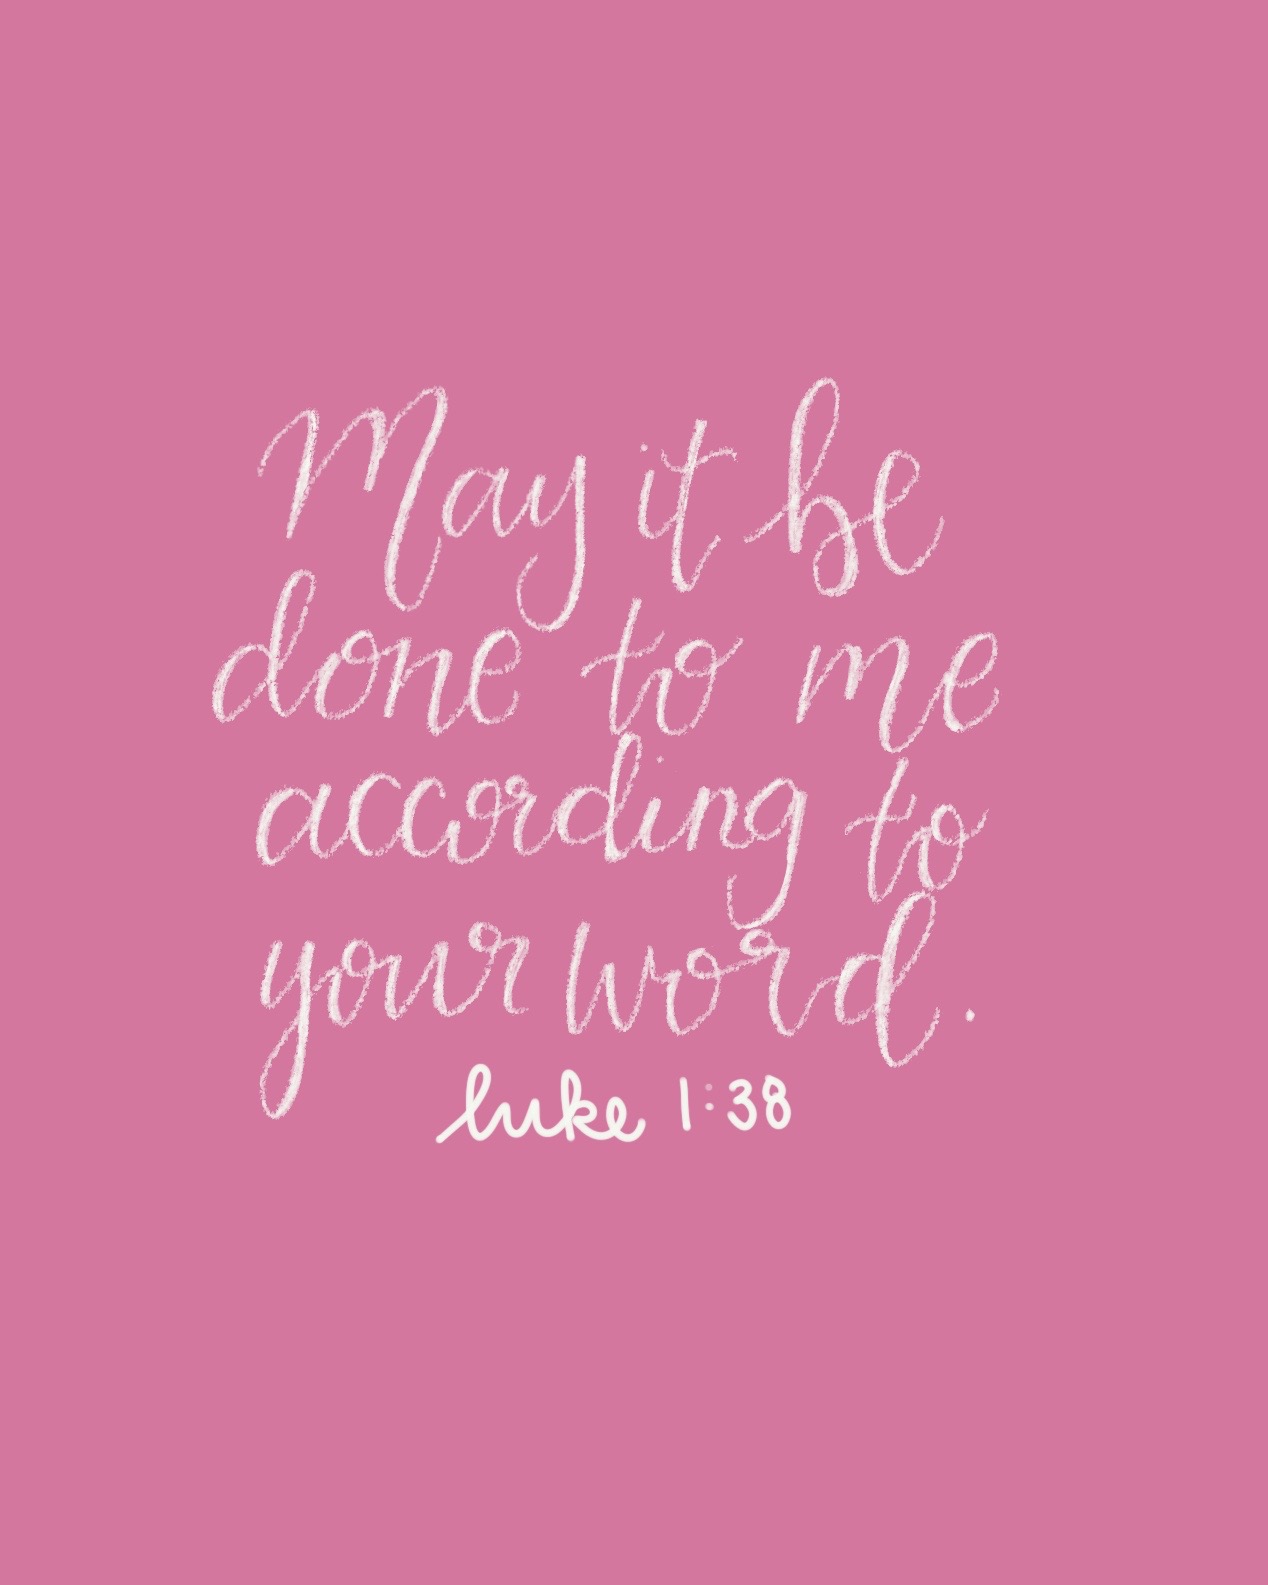 May it be
done to me
according to
your word.
luke 1:38